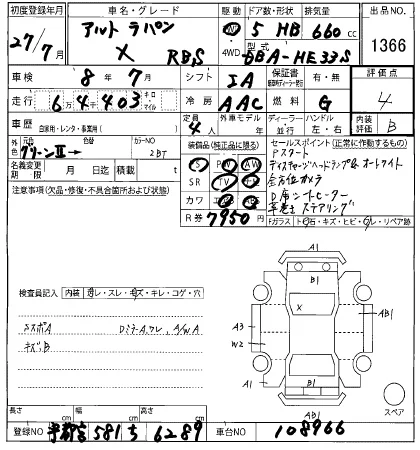 初度登録年月 車名・グレード 駆動 ドア数・形状 排気量 出品NO
27/7月 アルト ラパン X RBS 4WD 5 HB 660 cc 1366
型式 DBA-HE33S
車検 8年7月 シフト IA 保証書 有・無 評価点
走行 6万4千403 キロ マイル 冷房 AAC 燃料 G 4
車歴 自家用・レンタ・事業用( ) 定員 4人 外車モデル 年 ディーラー 並行 ハンドル 左・右 内装 B
外色 元色 グリーンⅡ→ 色替 カラーNO ZBT 装備品(純正品に限る) セールスポイント(正常に作動するもの)
名義変更期限 月 日迄 積載 t PS PW AW Pスタート
SR TV ナビ ディスチャージヘッドランプ&オートライト
注意事項(欠品・修復・不具合箇所および状態) カワ エアB ABS 全方位カメラ
D席シートヒーター
R券 7950円 革巻ステアリング
Fガラス トビ石・キズ・ヒビ・ワレ・リペア跡
検査員記入 内装 ヨゴレ・スレ・キズ・キレ・コゲ・穴
エスポA DミラーA,ワレ, A/W A
キズB
A1
B1
X
A3
W2
AB1
A1
B1
AB1
スペア
長さ cm 幅 cm 高さ cm
登録NO 宇都宮 581 ち 6289 車台NO 108966